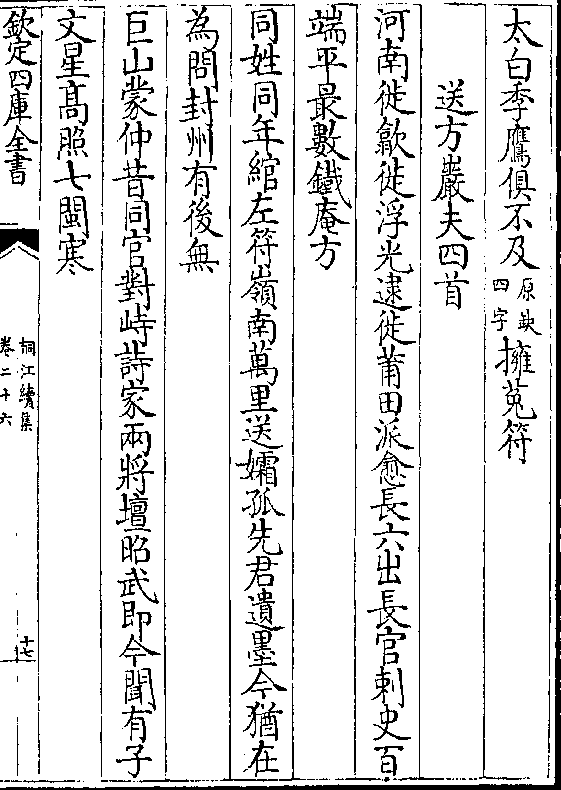 太白季鷹俱不及原缺四字擁菟符
送方巖夫四首
河南徙歙徙浮光逮徙莆田派愈長六出長官刺史百
端平最數鐵庵方
同姓同年綰左符嶺南萬里送孀孤先君遺墨今猶在
為問封州有後無
巨山蒙仲昔同官對峙詩家兩將壇昭武即今聞有子
文星高照七閩寒
欽定四庫全書
桐江續集
卷二十六
十七